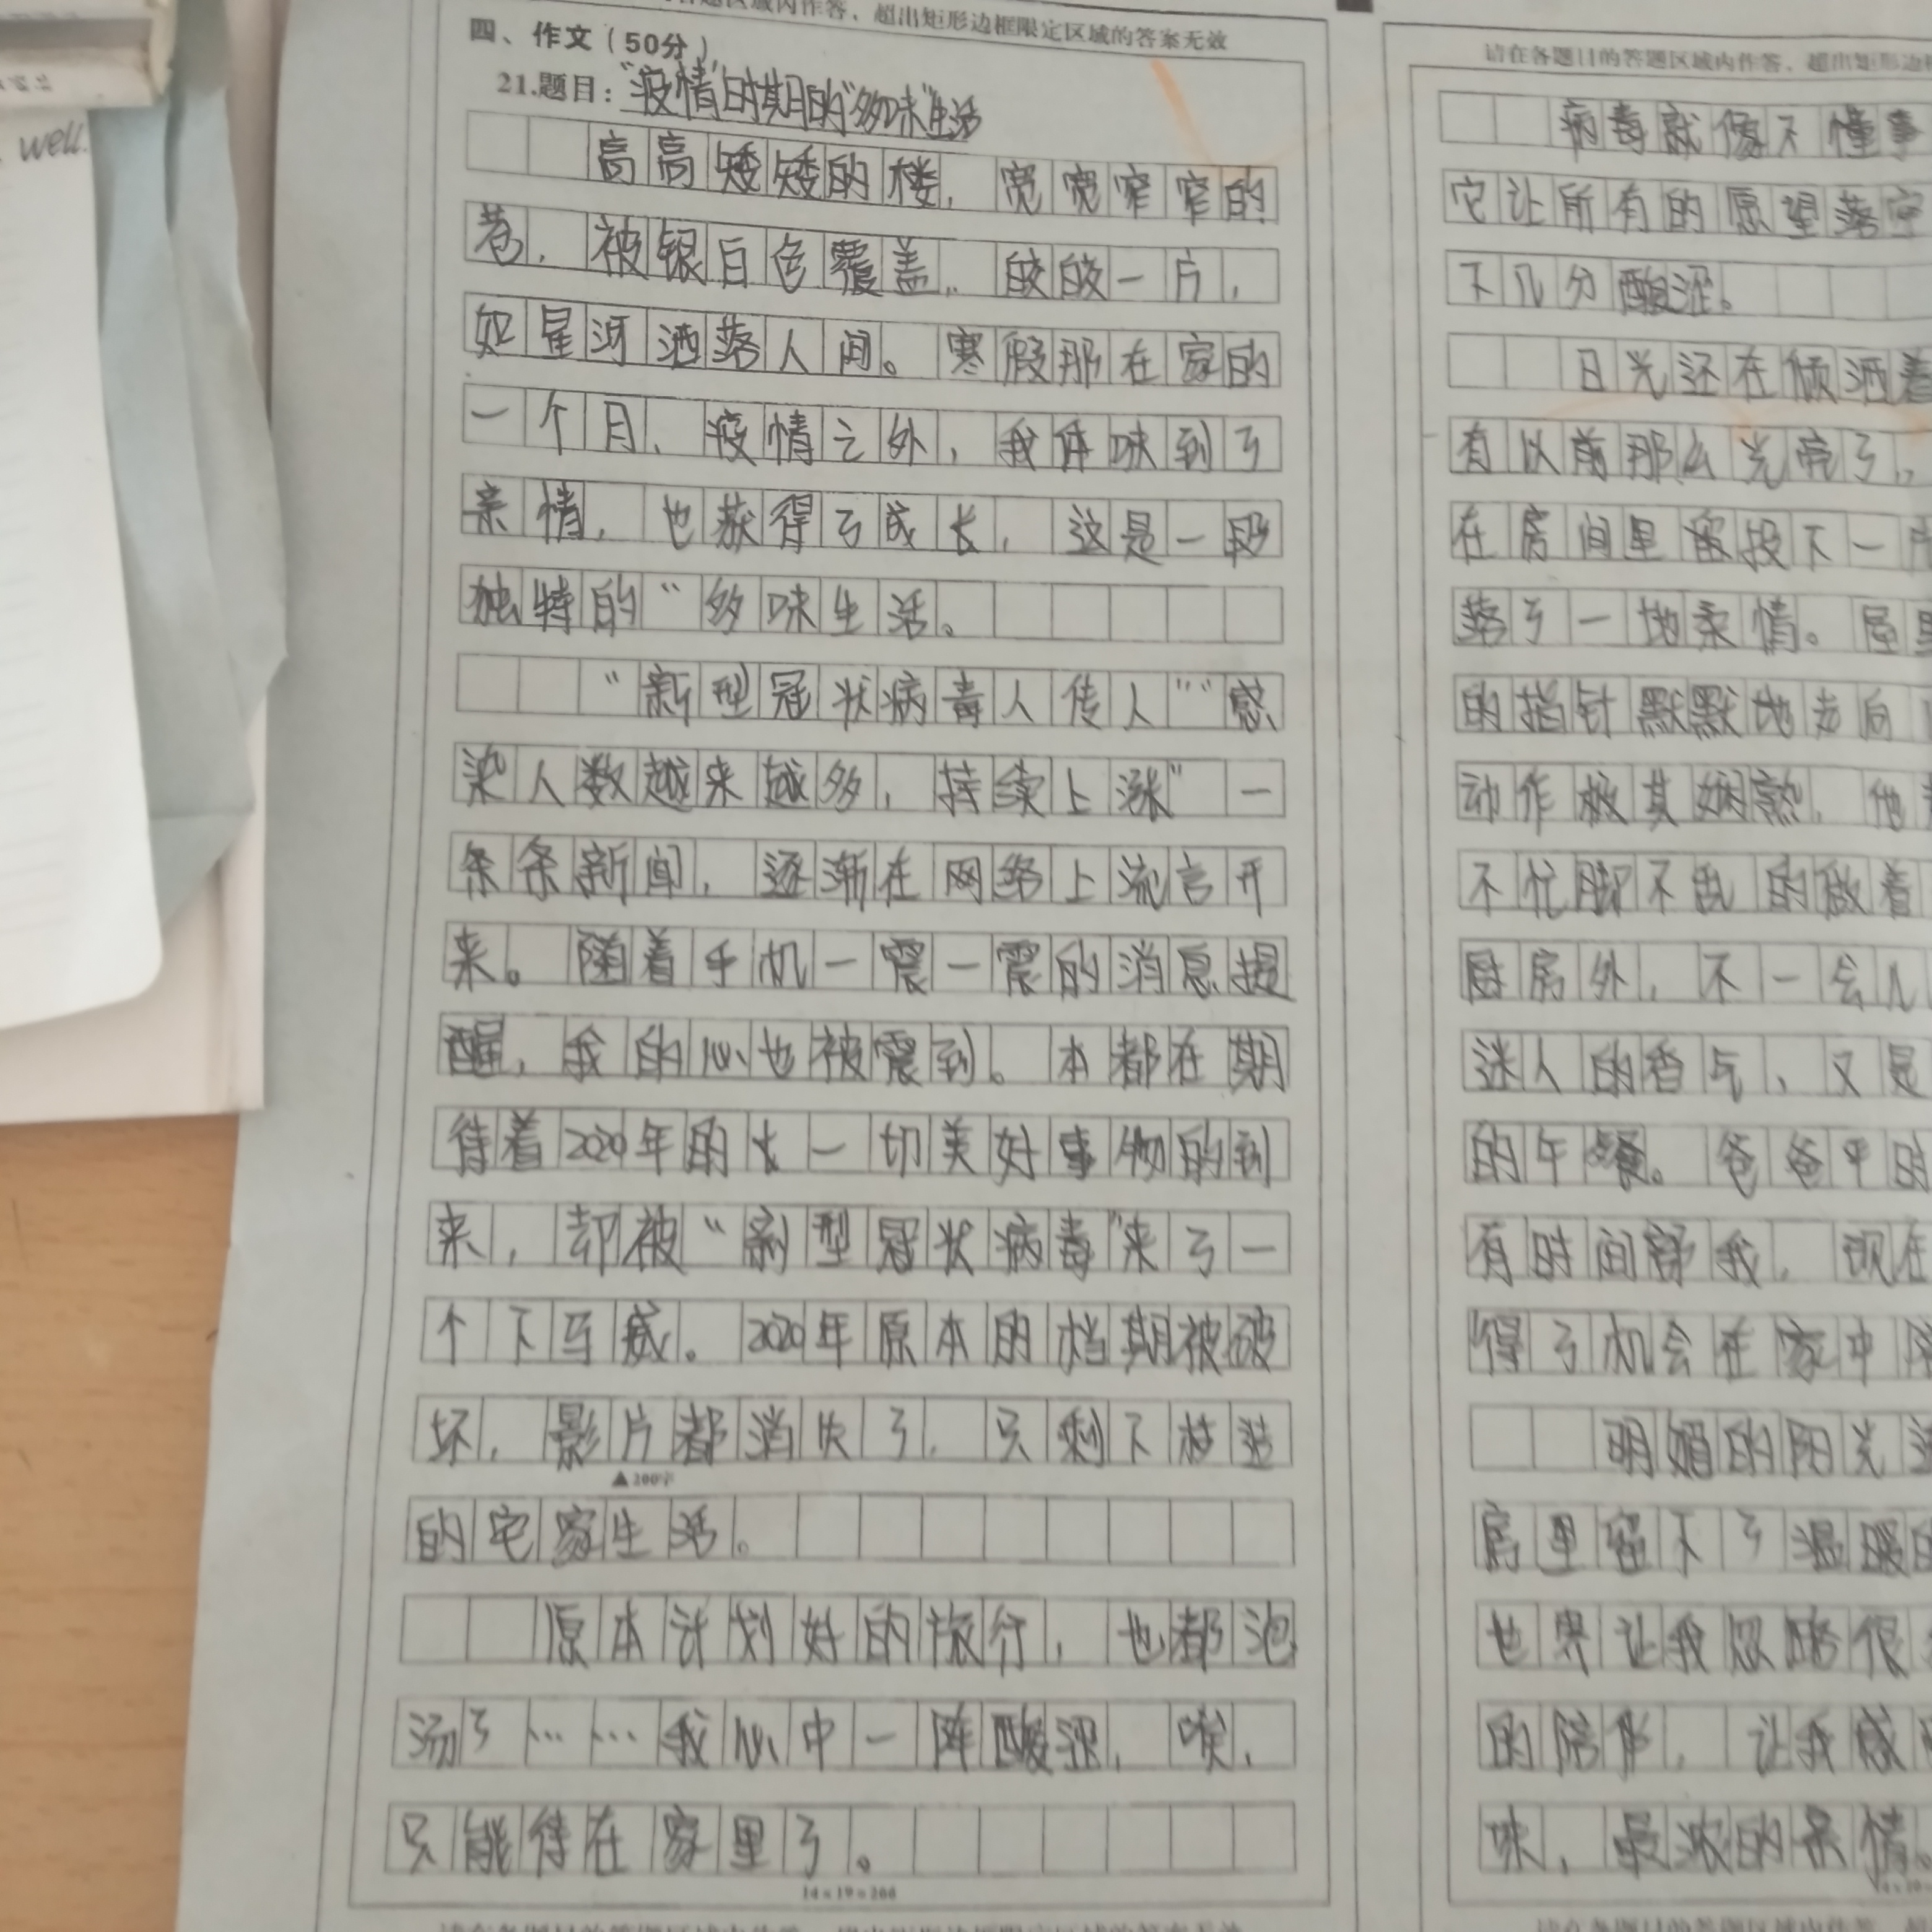 well.
超出矩形边框限定区域的答案无效
四、作文(50分)
21.题目:“疫情”时期的“多味”生活
高高矮矮的楼,宽宽窄窄的
巷,被银白色覆盖,皎皎一片,
如星河洒落人间。寒假那在家的
一个月,疫情之外,我体味到了
亲情,也获得了成长,这是一段
独特的“多味生活。
“新型冠状病毒人传人”“感
染人数越来越多,持续上涨”一
条条新闻,逐渐在网络上流言开
来。随着手机一震一震的消息提
醒,我的心也被震到。本都在期
待着2020年的一切美好事物的到
来,却被“新型冠状病毒”来了一
个下马威。2020年原本的档期被破
坏,影片都消失了,只剩下枯燥
▲200字
的宅家生活。
原本计划好的旅行,也都泡
汤了……我心中一阵酸涩,唉,
只能待在家里了。
14×19=266
请在各题目的答题区域内作答,超出矩形边
病毒就像不懂事
它让所有的愿望落空
下几分酸涩。
日光还在倾洒着
有以前那么光亮了,
在房间里被投下一
落了一地柔情。屋里
的指针默默地走向
动作极其娴熟,他
不忙脚不乱的做着
厨房外,不一会儿
迷人的香气,又是
的午餐。爸爸平时
有时间陪我,现在
得了机会在家中陪
明媚的阳光
房里留下了温暖的
也果让我忽略很
的陪伴,让我感
味,最浓的亲情。